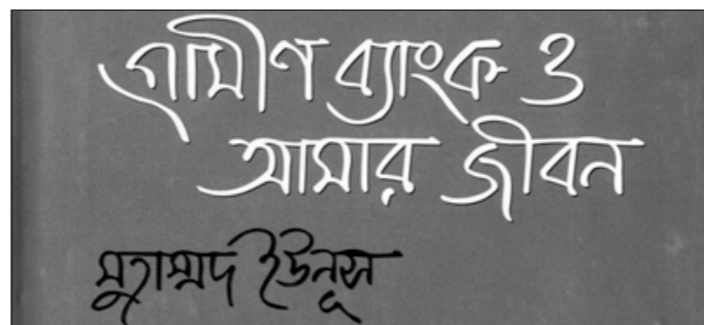 গ্রামীণ ব্যাংক ও
আমার জীবন
মুহাম্মদ ইউনূস